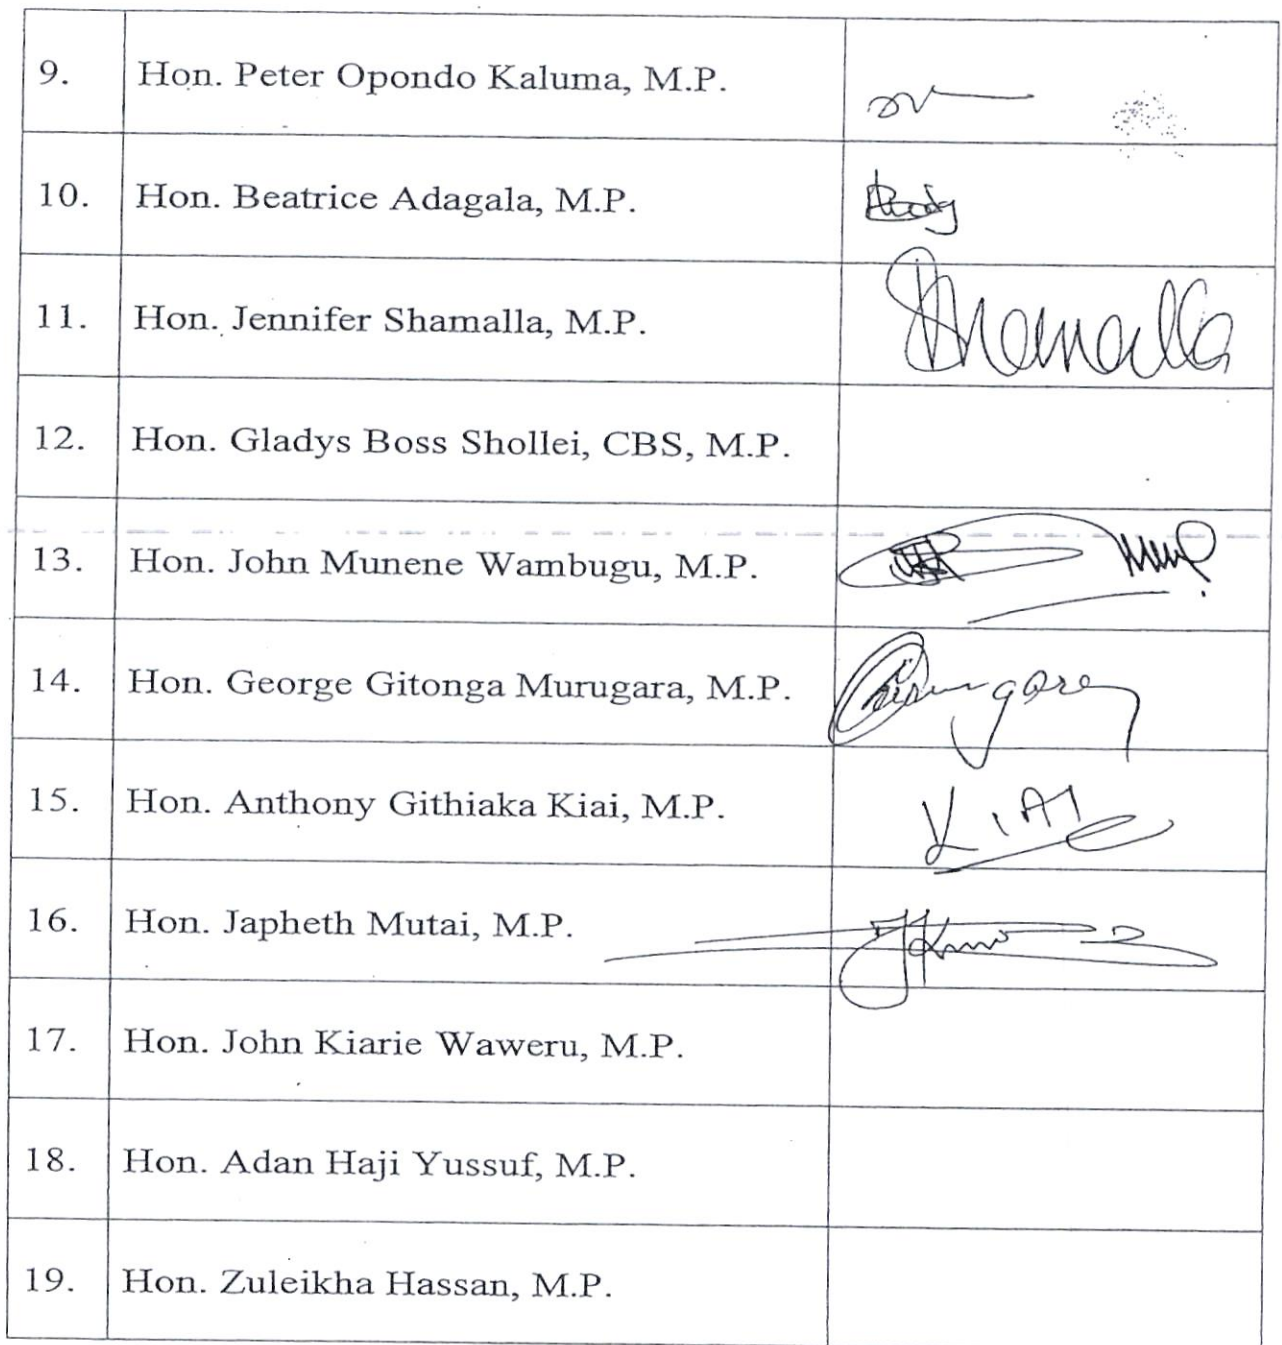 9. Hon. Peter Opondo Kaluma, M.P.
10. Hon. Beatrice Adagala, M.P.
11. Hon. Jennifer Shamalla, M.P. Shamalla
12. Hon. Gladys Boss Shollei, CBS, M.P.
13. Hon. John Munene Wambugu, M.P.
14. Hon. George Gitonga Murugara, M.P.
15. Hon. Anthony Githiaka Kiai, M.P. KIAI
16. Hon. Japheth Mutai, M.P.
17. Hon. John Kiarie Waweru, M.P.
18. Hon. Adan Haji Yussuf, M.P.
19. Hon. Zuleikha Hassan, M.P.